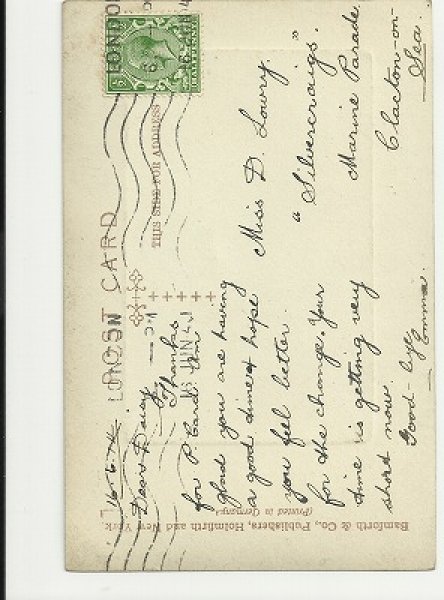 POST CARD
THIS SIDE FOR ADDRESS
LONDON
16.6.14
Dear Daisy
Thanks
for P. Card. Am
glad you are having
a good time & hope
you feel better
for the change. Your
time is getting very
short now.
Good-bye
Emma.
Miss D. Lowry.
"Silvercraigs".
Marine Parade
Clacton-on-
Sea.
Bamforth & Co., Publishers, Holmfirth and New York.
(Printed in Germany)